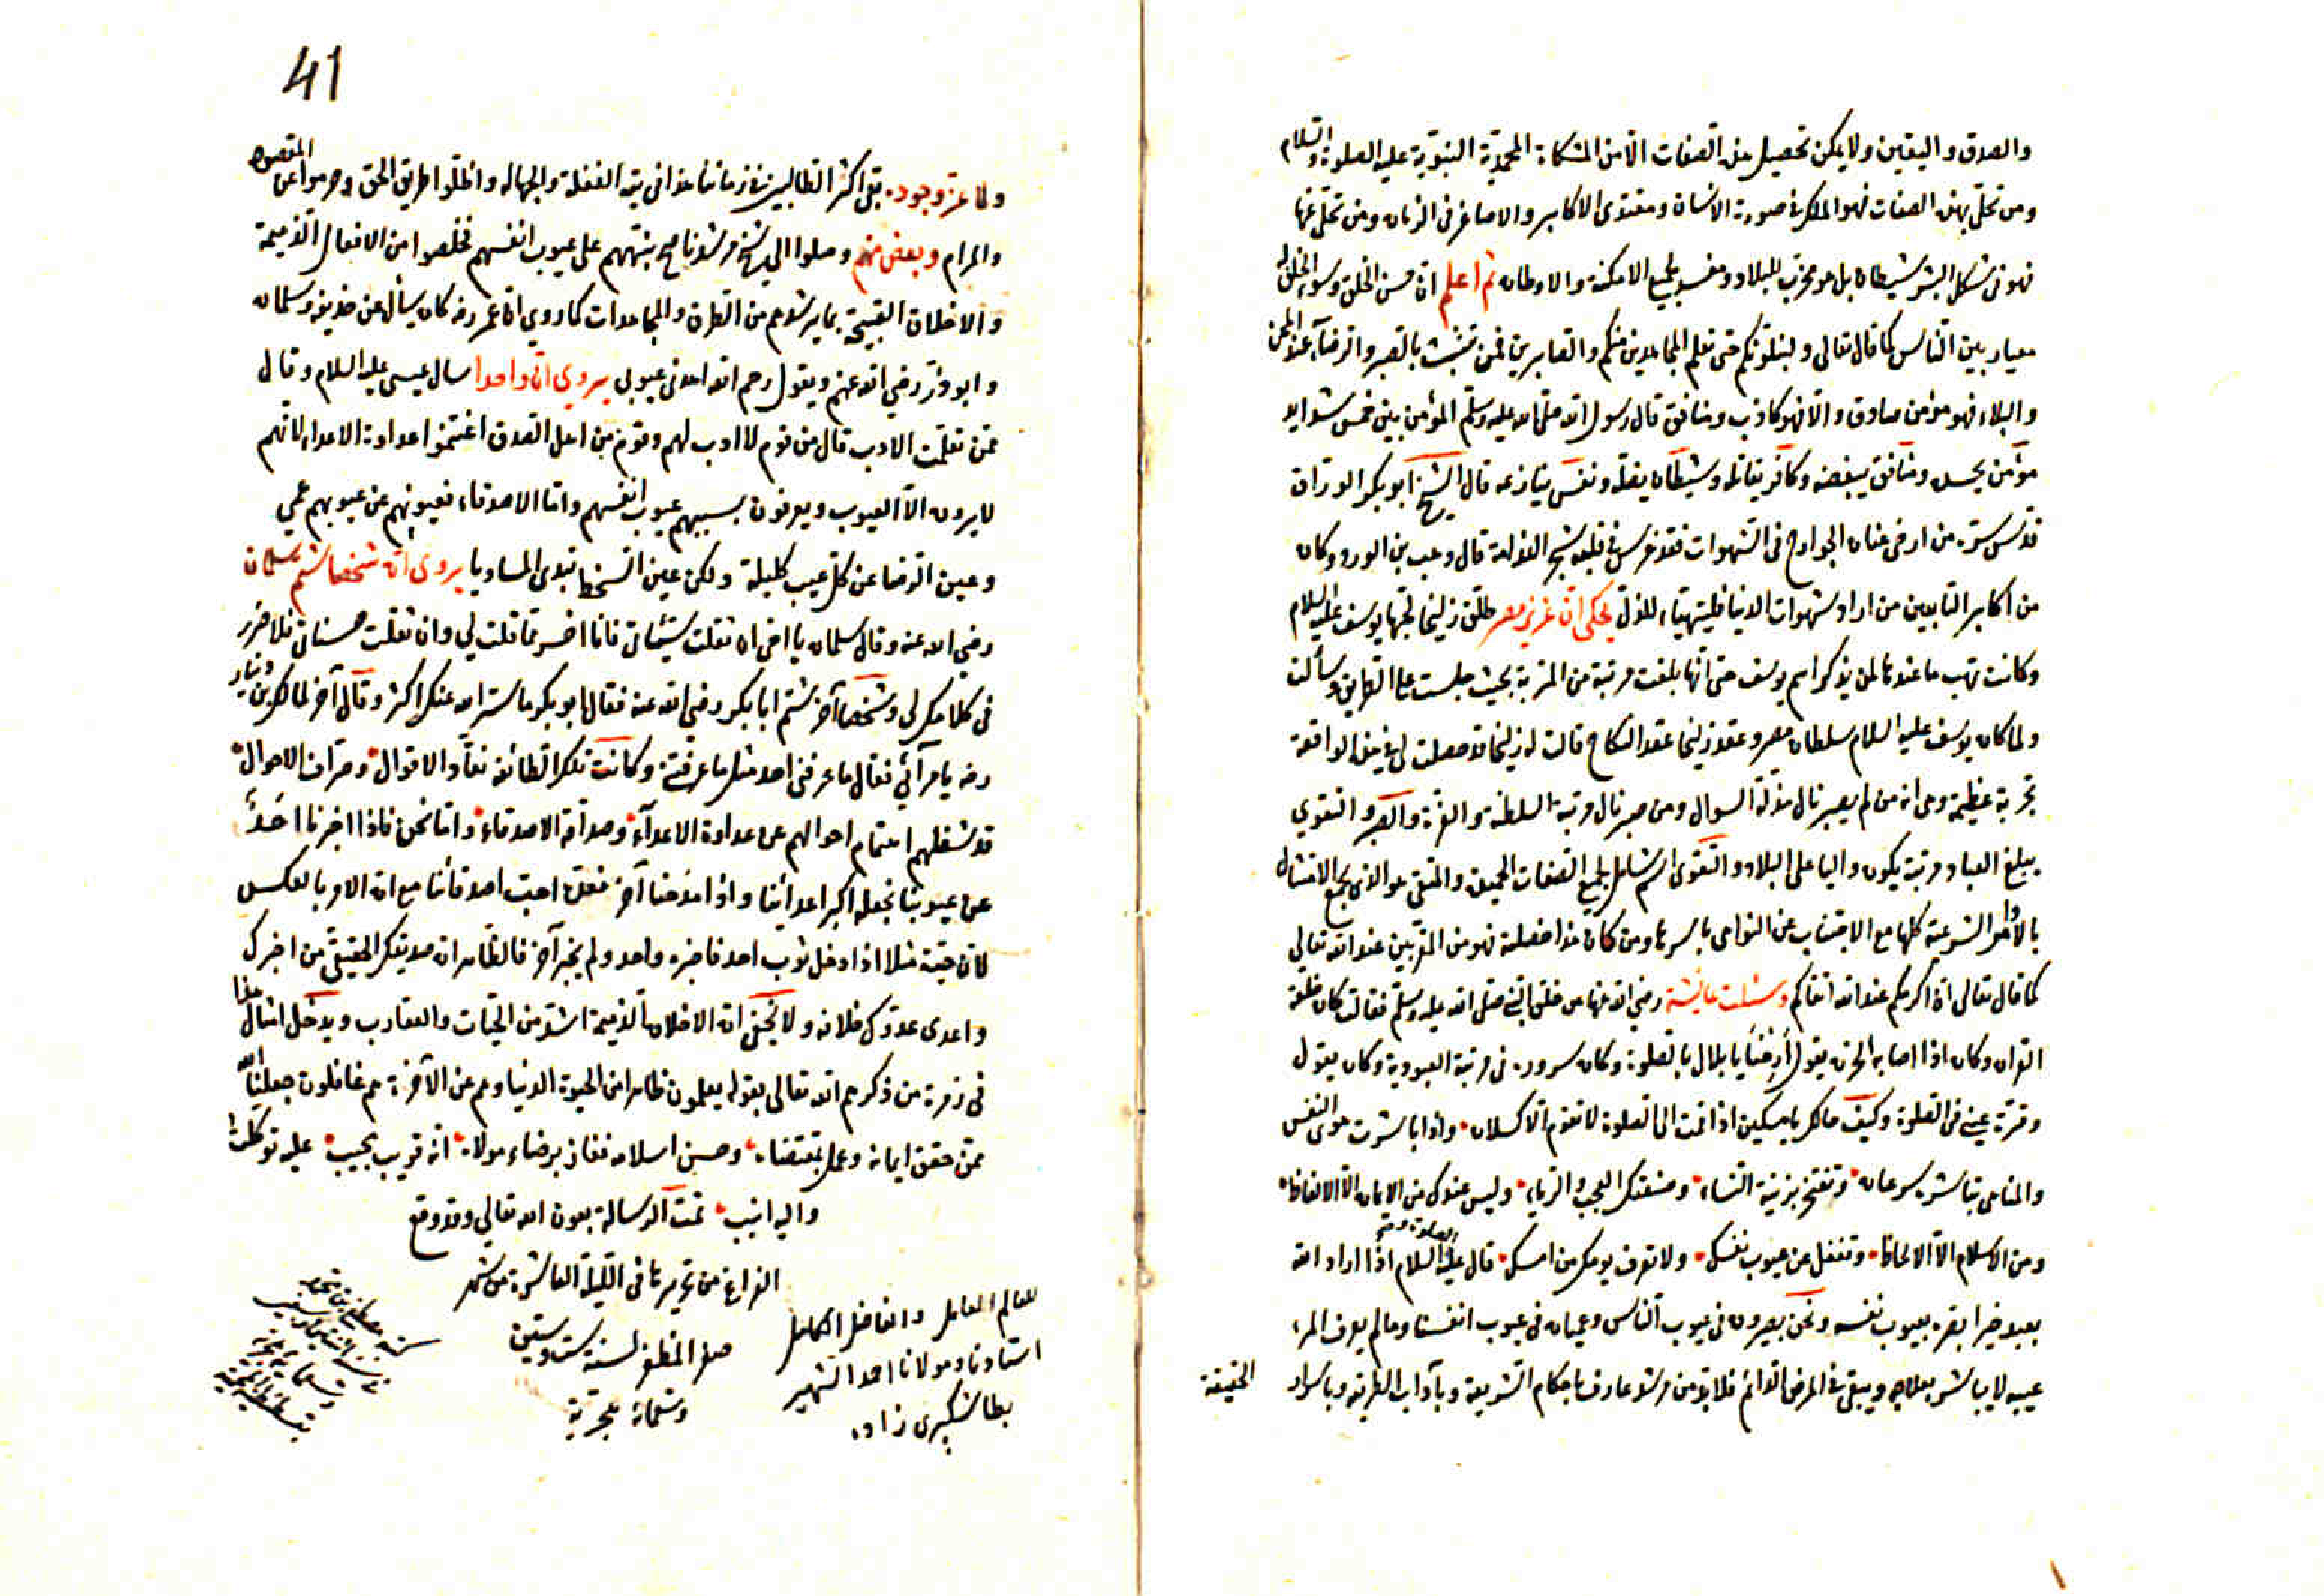 والصدق واليقين ولا يمكن تحصيل هذه الصفات الا من المشكاة المحمدية النبوية عليه الصلوة والسلام
ومن تحلى بهذه الصفات فهو الملك في صورة الانسان ومقتدى الاكابر والاصاغر في الزمان ومن تخلى عنها
فهو في شكل البشر شيطان بل هو مخرب للبلاد ومفسد لجميع الامكنة والاوطان ثم اعلم ان حسن الخلق وسوء الخلق له
معيار بين الناس كما قال تعالى ولنبلونكم حتى نعلم المجاهدين منكم والصابرين فمن تشبث بالصبر والرضاء عند المحن
والبلاء فهو مؤمن صادق والا فهو كاذب ومنافق قال رسول الله صلى الله عليه وسلم المؤمن بين خمس شدايد
مؤمن يحسده ومنافق يبغضه وكافر يقاتله وشيطان يضله ونفس ينازعه قال الشيخ ابو بكر الوراق
قدس سره من ارضى عنان الجوارح في الشهوات فقد غرس في قلبه شجر الندامة قال وهب بن الورد وكان
من اكابر التابعين من اراد شهوات الدنيا فليتهيأ للذل يحكى ان عزيز مصر طلق زليخا لحبها يوسف عليه السلام
وكانت تهب ما عندها لمن يذكر اسم يوسف حتى انها بلغت مرتبة من المتربة بحيث جلست على الطريق وسألت
ولما كان يوسف عليه السلام سلطان مصر وعقد زليخا عقد النكاح قالت له زليخا قد حصلت لي في هذه الواقعة
تجربة عظيمة وهي انه من لم يصبر نال مذلة السوال ومن صبر نال مرتبة السلطنة والعزة والصبر والتقوى
يبلغ العباد مرتبة يكون واليا على البلاد والتقوى اسم شامل لجميع الصفات الحميدة والمتقي هو الذي يجمع الامتثال
بالاوامر الشرعية كلها مع الاجتناب عن النواهي باسرها ومن كان هذا خصلته فهو من المقربين عند الله تعالى
كما قال تعالى ان اكرمكم عند الله اتقاكم وسئلت عائشة رضي الله عنها عن خلق النبي صلى الله عليه وسلم فقالت كان خلقه
القران وكان اذا اصابه الحزن يقول أرحنا يا بلال بالصلوة وكان سروره في مرتبة العبودية وكان يقول
وقرة عيني في الصلوة وكيف حالك يا مسكين اذا قمت الى الصلوة لا تقوم الا كسلان واذا باشرت هوى النفس
والمناهي تباشره سرعان وتفتخر بزينة النساء وصنعتك العجب والرياء وليس عندك من الايمان الا الالفاظ
ومن الاسلام الا الالحاظ وتغفل عن عيوب نفسك ولا تعرف يومك من امسك قال عليه الصلوة والسلام اذا اراد الله
بعبد خيرا بصره بعيوب نفسه ونحن بصيرون في عيوب الناس وعميان في عيوب انفسنا وما لم يعرف المرء
عيبه لا يباشر بعلاجه ويبقى في المرض الدائم فلا بد من مرشد عارف باحكام الشريعة وبآداب الطريقة وباسرار
الحقيقة
41
ولما عز وجوده بقي اكثر الطالبين في زماننا هذا في تيه الغفلة والجهالة واضلوا طريق الحق وحرموا عن المقصود
والمرام وبعض منهم وصلوا الى شيخ مرشد ناصح ينبههم على عيوب انفسهم فخلصوا من الافعال الذميمة
والاخلاق القبيحة بما يرشدهم من الطرق والمجاهدات كما روي ان عمر رضه كان يسأل عن حذيفة وسلمان
وابو ذر رضي الله عنهم ويقول رحم الله اهدى عيوبي يروى ان واحدا سال عيسى عليه السلام وقال
ممن تعلمت الادب قال من قوم لا ادب لهم وقوم من اهل الصدق اغتنموا عداوة الاعداء لانهم
لا يرون الا العيوب ويعرفون بسببهم عيوب انفسهم واما الاصدقاء فعيونهم عن عيوبهم عمي
وعين الرضا عن كل عيب كليلة ولكن عين السخط تبدى المساويا يروى ان شخصا شتم سلمان
رضي الله عنه وقال سلمان يا اخي ان ثقلت سيئاتي فانا اخسر مما قلت لي وان ثقلت حسناتي فلا ضرر
في كلامك لي وشخصا آخر شتم ابا بكر رضي الله عنه فقال ابو بكر ما ستر الله عنك اكثر وقال آخر لمالك بن دينار
رضه يا مرآئي فقال ما عرفني احد مثل ما عرفته وكانت تلك الطائفة نقاد الاقوال وصراف الاحوال
قد شغلهم اهتمام احوالهم عن عداوة الاعدآء وصداقة الاصدقاء واما نحن فاذا اخبرنا احد
عن عيوبنا نجعله اكبر اعدائنا واذا مدحنا آخر نجعله احب اصدقائنا مع ان الامر بالعكس
لان حية مثلا اذا دخل ثوب احد فاخبره واحد ولم يخبر آخر فالظاهر ان صديقك الحقيقي من اخبرك
واعدى عدوك خلافه ولا يخفى ان الاخلاق الذميمة اشد من الحيات والعقارب ويدخل امثال هذا
في زمرة من ذكرهم الله تعالى بقوله يعلمون ظاهرا من الحيوة الدنيا وهم عن الآخرة هم غافلون جعلنا الله
ممن حقق ايمانه وعمل بمقتضاه وحسن اسلامه ففاز برضاء مولاه انه قريب مجيب عليه توكلت
واليه انيب تمت الرسالة بعون الله تعالى وقد وقع
الفراغ من تحريرها في الليلة العاشرة من شهر
صفر المظفر لسنة ست وستين
وتسعمائة هجرية
للعالم العامل والفاضل الكامل
استادنا ومولانا احمد الشهير
بطاشكبرى زاده